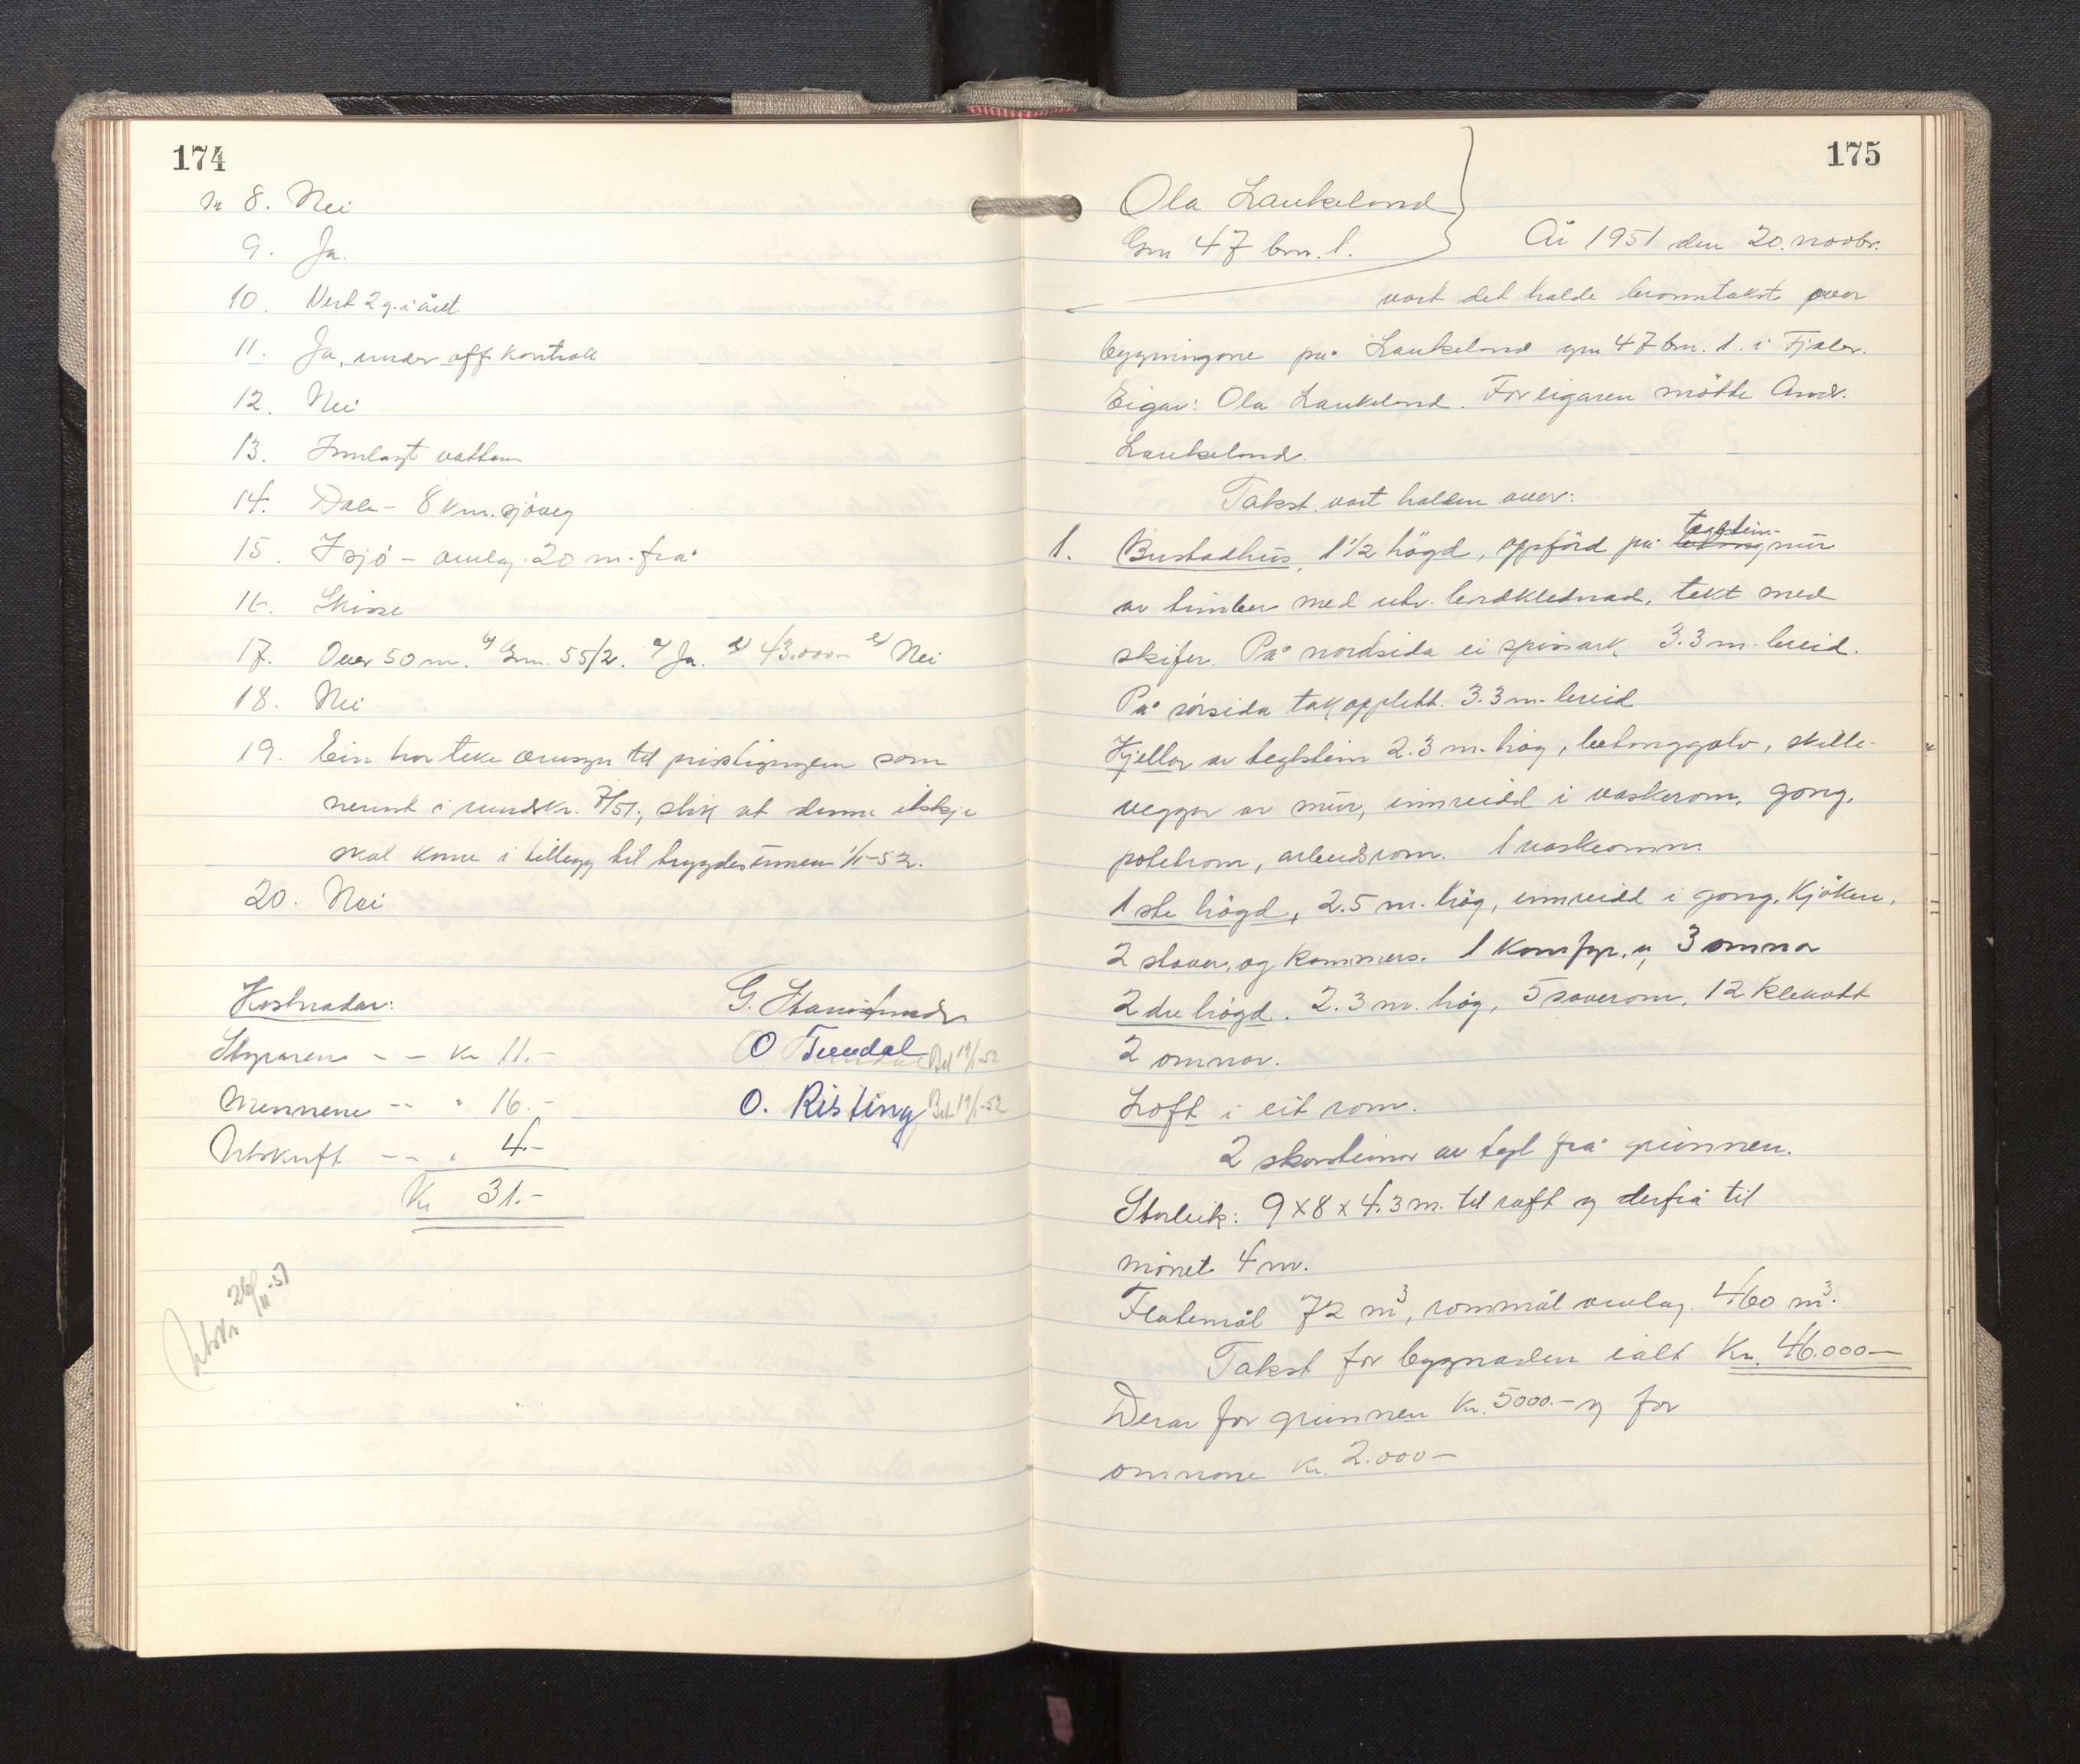 174
Nr 8. Nei
9. Ja.
10. Vert 2 g. i året
11. Ja, under off. kontroll
12. Nei
13. Innlagt vatten
14. Dale - 8 km. sjöveg
15. I sjö - omlag 20 m. frå
16. Skisse
17. Over 50 m. b) Gnr. 55/2. c) Ja. d) 43.000.- e) Nei
18. Nei
19. Ein har teke omsyn til prisstigningen som
nemnt i rundskr. 7/51, slik at denne ikkje
skal kome i tillegg til brygdesummen 1/1-52.
20. Nei
Kostnadar:
Styraren - - Kr 11.-
Mennene -- " 16.-
Utskrift -- " 4.-
Kr 31.-
G.
O Tundal Bet 19/1-52
O. Risting Bet 19/1-52
Utskr. 26/11-51
175
Ola Laukeland
Gnr 47 bnr. 1.
År 1951 den 20. novbr.
vart det halde branntakst over
bygningane på Laukeland gnr 47 bnr. 1. i Fjaler.
Eigar: Ola Laukeland. For eigaren mötte Andr.
Laukeland.
Takst vart halden over:
1. Bustadhus, 1 1/2 högd, oppförd på teglstein- mur
av timber med utv. bordklednad, tekt med
skifer. På nordsida ei spissark 3.3 m. breid.
På sörsida takopplett. 3.3 m. breid
Kjellar av teglstein 2.3 m. hög, betonggolv, skille-
veggar av mur, innreidd i vaskerom, gong,
potetrom, arbeidsrom. 1 vaskeomn.
1ste högd, 2.5 m. hög, innreidd i gong, kjöken,
2 stover, og kammers. 1 komfyr. og 3 omnar
2dre högd. 2.3 m. hög, 5 soverom, 12 klekott
2 omnar.
Loft i eit rom.
2 skorsteinar av tegl frå grunnen.
Storleik: 9 x 8 x 4.3 m. til raft og derfrå til
mönet 4 m.
Flatemål 72 m3, rommål omlag. 460 m3.
Takst for bygnaden ialt Kr. 46.000-
Derav for grunnen Kr. 5000.- og for
omnane Kr. 2.000-